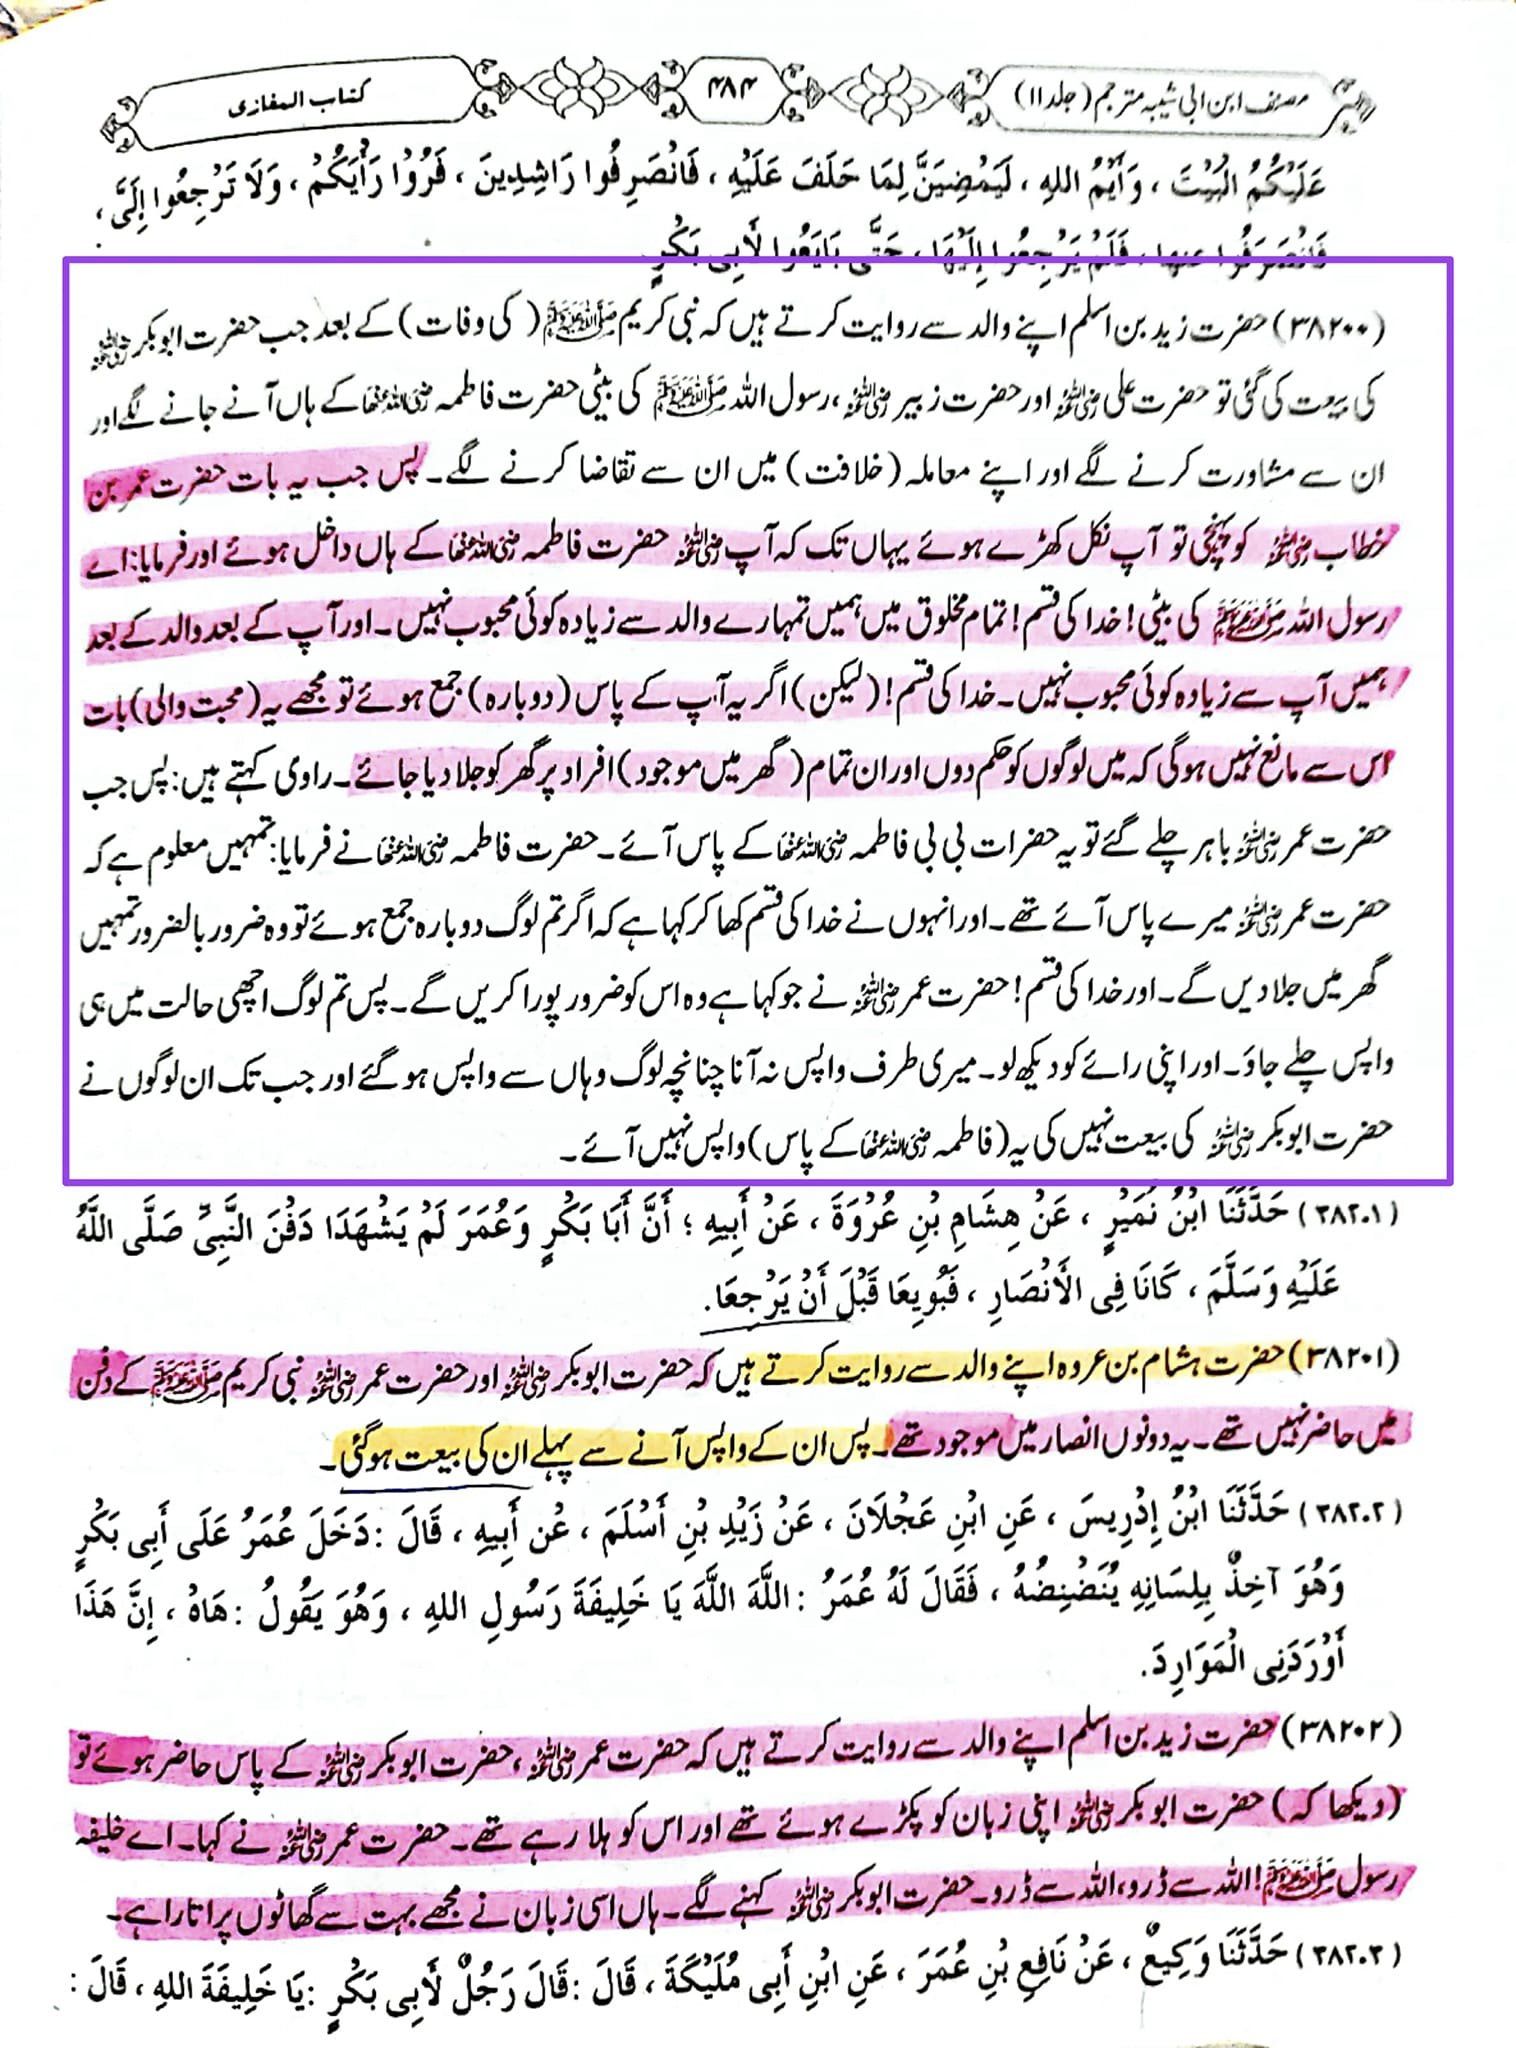 مصنف ابن ابی شیبہ مترجم (جلد ۱۱)
۴۸۴
کتاب المغازی
عَلَيْكُمُ الْبَيْتَ ، وَأَيْمُ اللهِ ، لَيَمْضِيَنَّ لِمَا حَلَفَ عَلَيْهِ ، فَانْصَرِفُوا رَاشِدِينَ ، فَرُوْا رَأْيَكُمْ ، وَلَا تَرْجِعُوا إِلَيَّ ،
فَانْصَرَفُوا عنها ، فَلَمْ يَرْجِعُوا إِلَيْهَا ، حَتَّى بَايَعُوا لِأَبِي بَكْرٍ.
(۳۸۲۰۰) حضرت زید بن اسلم اپنے والد سے روایت کرتے ہیں کہ نبی کریم ﷺ (کی وفات) کے بعد جب حضرت ابوبکر رضی اللہ عنہ
کی بیعت کی گئی تو حضرت علی رضی اللہ عنہ اور حضرت زبیر رضی اللہ عنہ ، رسول اللہ ﷺ کی بیٹی حضرت فاطمہ رضی اللہ عنہا کے ہاں آنے جانے لگے اور
ان سے مشاورت کرنے لگے اور اپنے معاملہ (خلافت) میں ان سے تقاضا کرنے لگے۔ پس جب یہ بات حضرت عمر بن
خطاب رضی اللہ عنہ کو پہنچی تو آپ نکل کھڑے ہوئے یہاں تک کہ آپ رضی اللہ عنہ حضرت فاطمہ رضی اللہ عنہا کے ہاں داخل ہوئے اور فرمایا: اے
رسول اللہ ﷺ کی بیٹی! خدا کی قسم! تمام مخلوق میں ہمیں تمہارے والد سے زیادہ کوئی محبوب نہیں۔ اور آپ کے بعد والد کے بعد
ہمیں آپ سے زیادہ کوئی محبوب نہیں۔ خدا کی قسم! (لیکن) اگر یہ آپ کے پاس (دوبارہ) جمع ہوئے تو مجھے یہ (محبت والی) بات
اس سے مانع نہیں ہوگی کہ میں لوگوں کو حکم دوں اور ان تمام (گھر میں موجود) افراد پر گھر کو جلا دیا جائے۔ راوی کہتے ہیں: پس جب
حضرت عمر رضی اللہ عنہ باہر چلے گئے تو یہ حضرات بی بی فاطمہ رضی اللہ عنہا کے پاس آئے۔ حضرت فاطمہ رضی اللہ عنہا نے فرمایا: تمہیں معلوم ہے کہ
حضرت عمر رضی اللہ عنہ میرے پاس آئے تھے۔ اور انہوں نے خدا کی قسم کھا کر کہا ہے کہ اگر تم لوگ دوبارہ جمع ہوئے تو وہ ضرور بالضرور تمہیں
گھر میں جلا دیں گے۔ اور خدا کی قسم! حضرت عمر رضی اللہ عنہ نے جو کہا ہے وہ اس کو ضرور پورا کریں گے۔ پس تم لوگ اچھی حالت میں ہی
واپس چلے جاؤ۔ اور اپنی رائے کو دیکھ لو۔ میری طرف واپس نہ آنا چنانچہ لوگ وہاں سے واپس ہو گئے اور جب تک ان لوگوں نے
حضرت ابوبکر رضی اللہ عنہ کی بیعت نہیں کی یہ (فاطمہ رضی اللہ عنہا کے پاس) واپس نہیں آئے۔
(۳۸۲۰۱) حَدَّثَنَا ابْنُ نُمَيْرٍ ، عَنْ هِشَامِ بْنِ عُرْوَةَ ، عَنْ أَبِيهِ ؛ أَنَّ أَبَا بَكْرٍ وَعُمَرَ لَمْ يَشْهَدَا دَفْنَ النَّبِيِّ صَلَّى اللَّهُ
عَلَيْهِ وَسَلَّمَ ، كَانَا فِي الْأَنْصَارِ ، فَبُويِعَا قَبْلَ أَنْ يَرْجِعَا.
(۳۸۲۰۱) حضرت ہشام بن عروہ اپنے والد سے روایت کرتے ہیں کہ حضرت ابوبکر رضی اللہ عنہ اور حضرت عمر رضی اللہ عنہ نبی کریم ﷺ کے دفن
میں حاضر نہیں تھے۔ یہ دونوں انصار میں موجود تھے۔ پس ان کے واپس آنے سے پہلے ان کی بیعت ہو گئی۔
(۳۸۲۰۲) حَدَّثَنَا ابْنُ إِدْرِيسَ ، عَنِ ابْنِ عَجْلَانَ ، عَنْ زَيْدِ بْنِ أَسْلَمَ ، عَنْ أَبِيهِ ، قَالَ : دَخَلَ عُمَرُ عَلَى أَبِي بَكْرٍ
وَهُوَ آخِذٌ بِلِسَانِهِ يُنَضْنِضُهُ ، فَقَالَ لَهُ عُمَرُ : اللَّهَ اللَّهَ يَا خَلِيفَةَ رَسُولِ اللهِ ، وَهُوَ يَقُولُ : هَاهْ ، إِنَّ هَذَا
أَوْرَدَنِي الْمَوَارِدَ.
(۳۸۲۰۲) حضرت زید بن اسلم اپنے والد سے روایت کرتے ہیں کہ حضرت عمر رضی اللہ عنہ ، حضرت ابوبکر رضی اللہ عنہ کے پاس حاضر ہوئے تو
(دیکھا کہ) حضرت ابوبکر رضی اللہ عنہ اپنی زبان کو پکڑے ہوئے تھے اور اس کو ہلا رہے تھے۔ حضرت عمر رضی اللہ عنہ نے کہا۔ اے خلیفہ
رسول ﷺ! اللہ سے ڈرو، اللہ سے ڈرو۔ حضرت ابوبکر رضی اللہ عنہ کہنے لگے۔ ہاں اسی زبان نے مجھے بہت سے گھاٹوں پر اتارا ہے۔
(۳۸۲۰۳) حَدَّثَنَا وَكِيعٌ ، عَنْ نَافِعِ بْنِ عُمَرَ ، عَنِ ابْنِ أَبِي مُلَيْكَةَ ، قَالَ : قَالَ رَجُلٌ لِأَبِي بَكْرٍ : يَا خَلِيفَةَ اللهِ ، قَالَ :